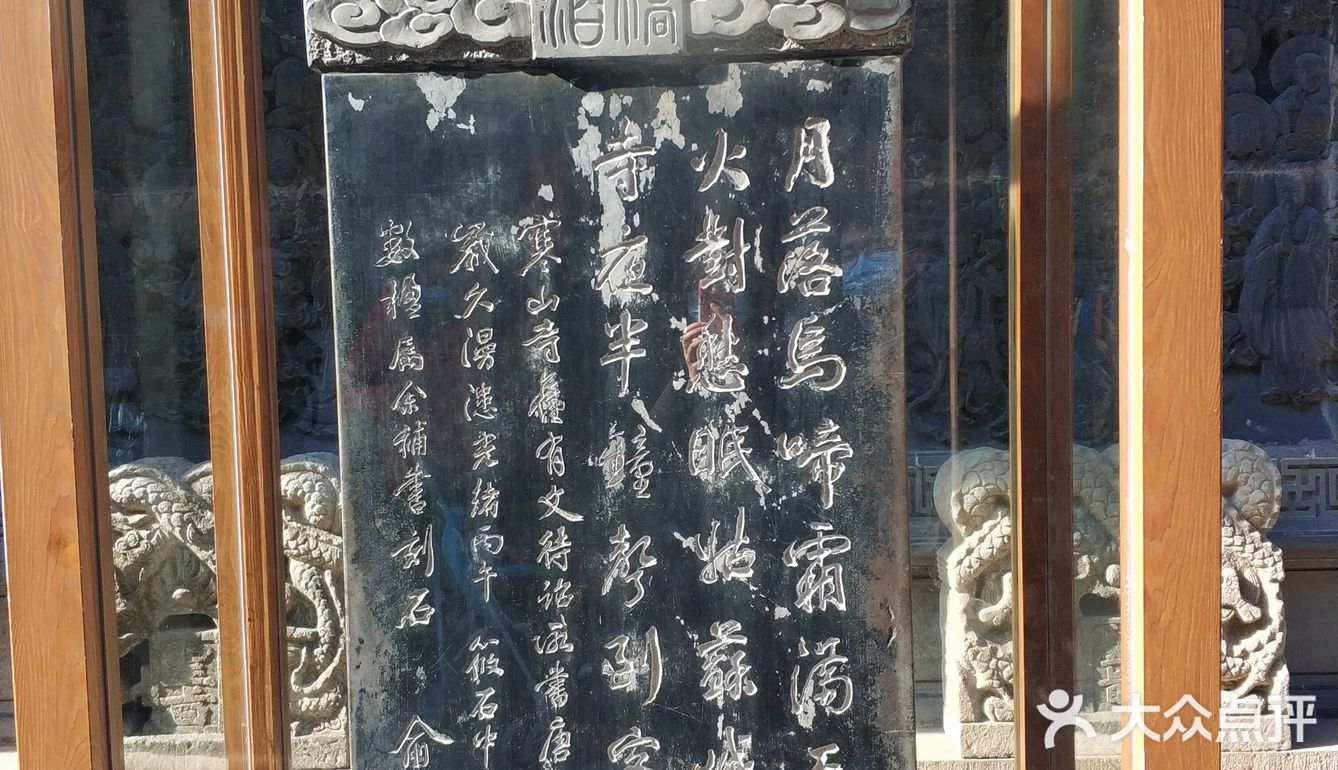 橋泊
月落烏啼霜滿天
火對愁眠姑蘇城
寺夜半鐘聲到客
寒山寺舊有文待詔所書唐
歲久漫漶光緒丙午筱石中
數楹屬余補書刻石 俞
大众点评